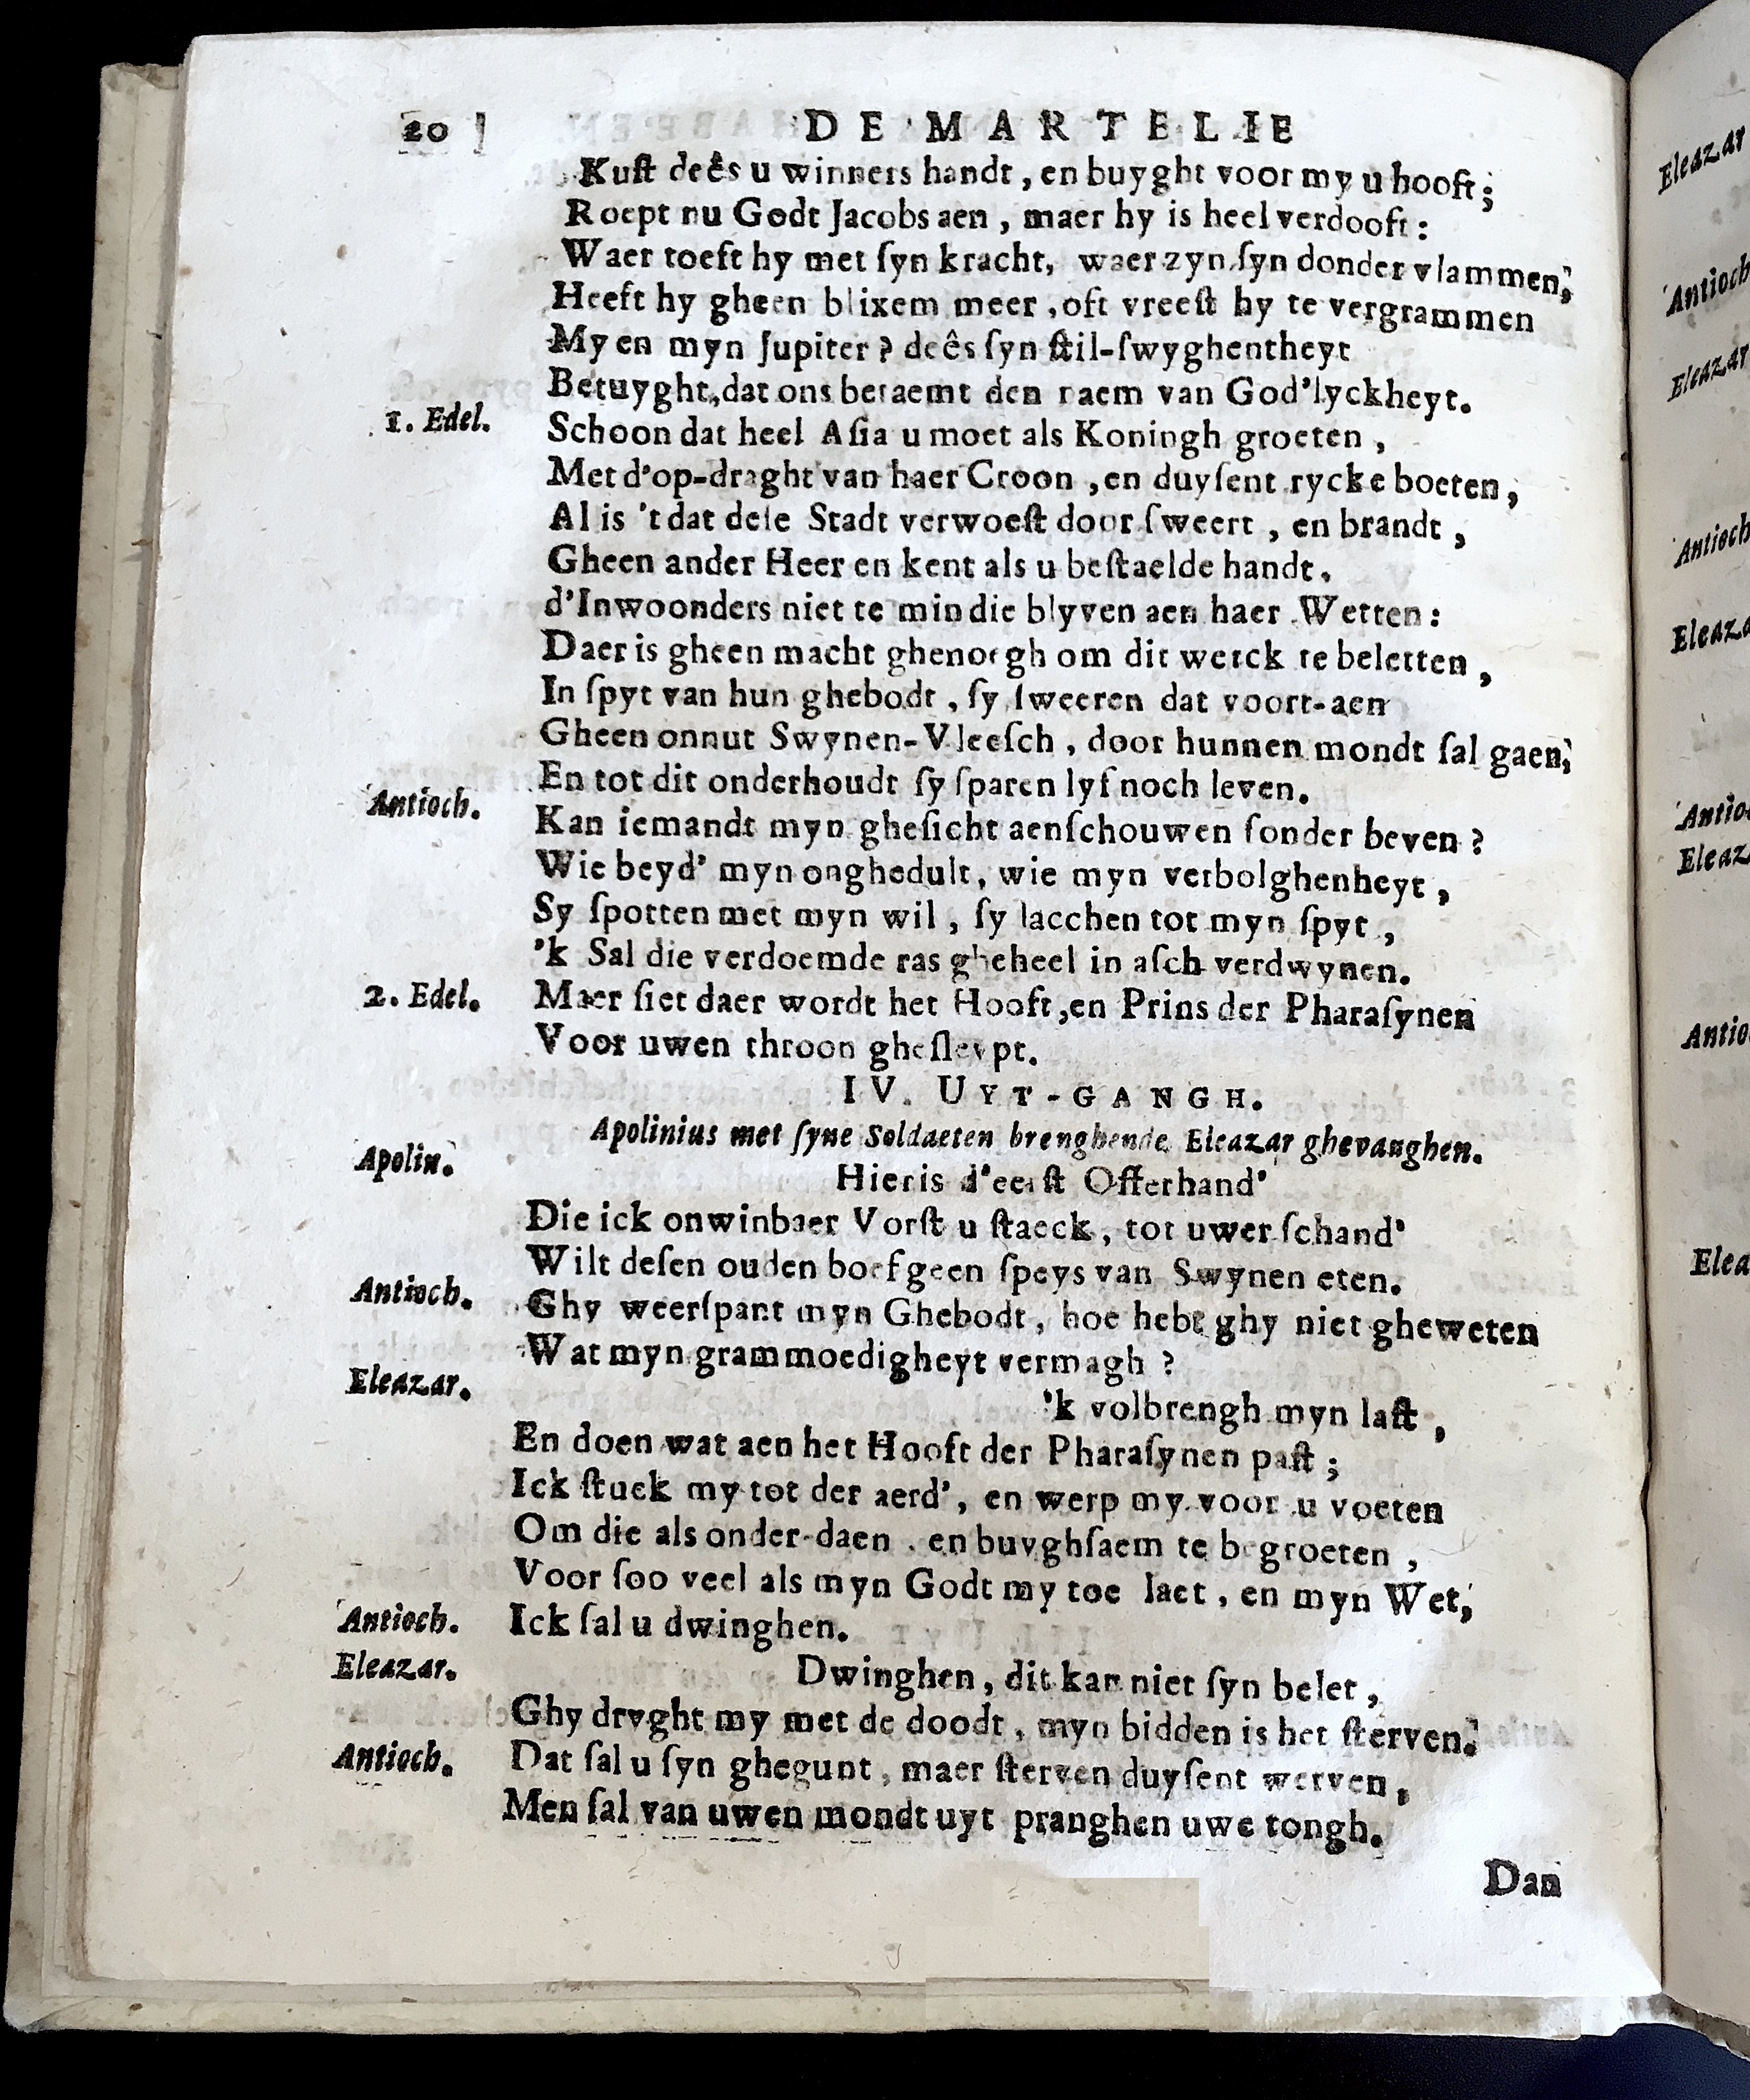 20 DE MARTELIE
Kuſt deês u winners handt, en buyght voor my u hooft;
Roept nu Godt Jacobs aen, maer hy is heel verdooft:
Waer toeft hy met ſyn kracht, waer zyn ſyn donder vlammen,
Heeft hy gheen blixem meer, oft vreeſt hy te vergrammen
My en myn Jupiter? deês ſyn ſtil-ſwyghentheyt
Betuyght, dat ons betaemt den naem van God'lyckheyt.
1. Edel. Schoon dat heel Aſia u moet als Koningh groeten,
Met d'op-draght van haer Croon, en duyſent rycke boeten,
Al is 't dat deſe Stadt verwoeſt door ſweert, en brandt,
Gheen ander Heer en kent als u beſtaelde handt.
d'Inwoonders niet te min die blyven aen haer Wetten:
Daer is gheen macht ghenoegh om dit werck te beletten,
In ſpyt van hun ghebodt, ſy ſweeren dat voort-aen
Gheen onnut Swynen-Vleeſch, door hunnen mondt ſal gaen,
En tot dit onderhoudt ſy ſparen lyf noch leven.
Antioch. Kan iemandt myn gheſicht aenſchouwen ſonder beven?
Wie beyd' myn onghedult, wie myn verbolghenheyt,
Sy ſpotten met myn wil, ſy lacchen tot myn ſpyt,
'k Sal die verdoemde ras gheheel in aſch verdwynen.
2. Edel. Maer ſiet daer wordt het Hooft, en Prins der Pharaſynen
Voor uwen throon gheſleypt.
IV. UYT-GANGH.
Apolinius met ſyne Soldaeten brenghende Eleazar ghevanghen.
Apolin. Hier is d'eerſt Offerhand'
Die ick onwinbaer Vorſt u ſtaeck, tot uwer ſchand'
Wilt deſen ouden boef geen ſpeys van Swynen eten.
Antioch. Ghy weerſpant myn Ghebodt, hoe hebt ghy niet gheweten
Wat myn grammoedigheyt vermagh?
Eleazar. 'k volbrengh myn laſt,
En doen wat aen het Hooft der Pharaſynen paſt;
Ick ſtuck my tot der aerd', en werp my voor u voeten
Om die als onder-daen, en buyghſaem te begroeten,
Voor ſoo veel als myn Godt my toe laet, en myn Wet,
Antioch. Ick ſal u dwinghen.
Eleazar. Dwinghen, dit kan niet ſyn belet,
Ghy dryght my met de doodt, myn bidden is het ſterven.
Antioch. Dat ſal u ſyn ghegunt, maer ſterven duyſent werven,
Men ſal van uwen mondt uyt pranghen uwe tongh.
Dan
Eleazar
Antioch
Eleazar
Antioch
Eleaza
Antio
Eleaz
Antio
Elea